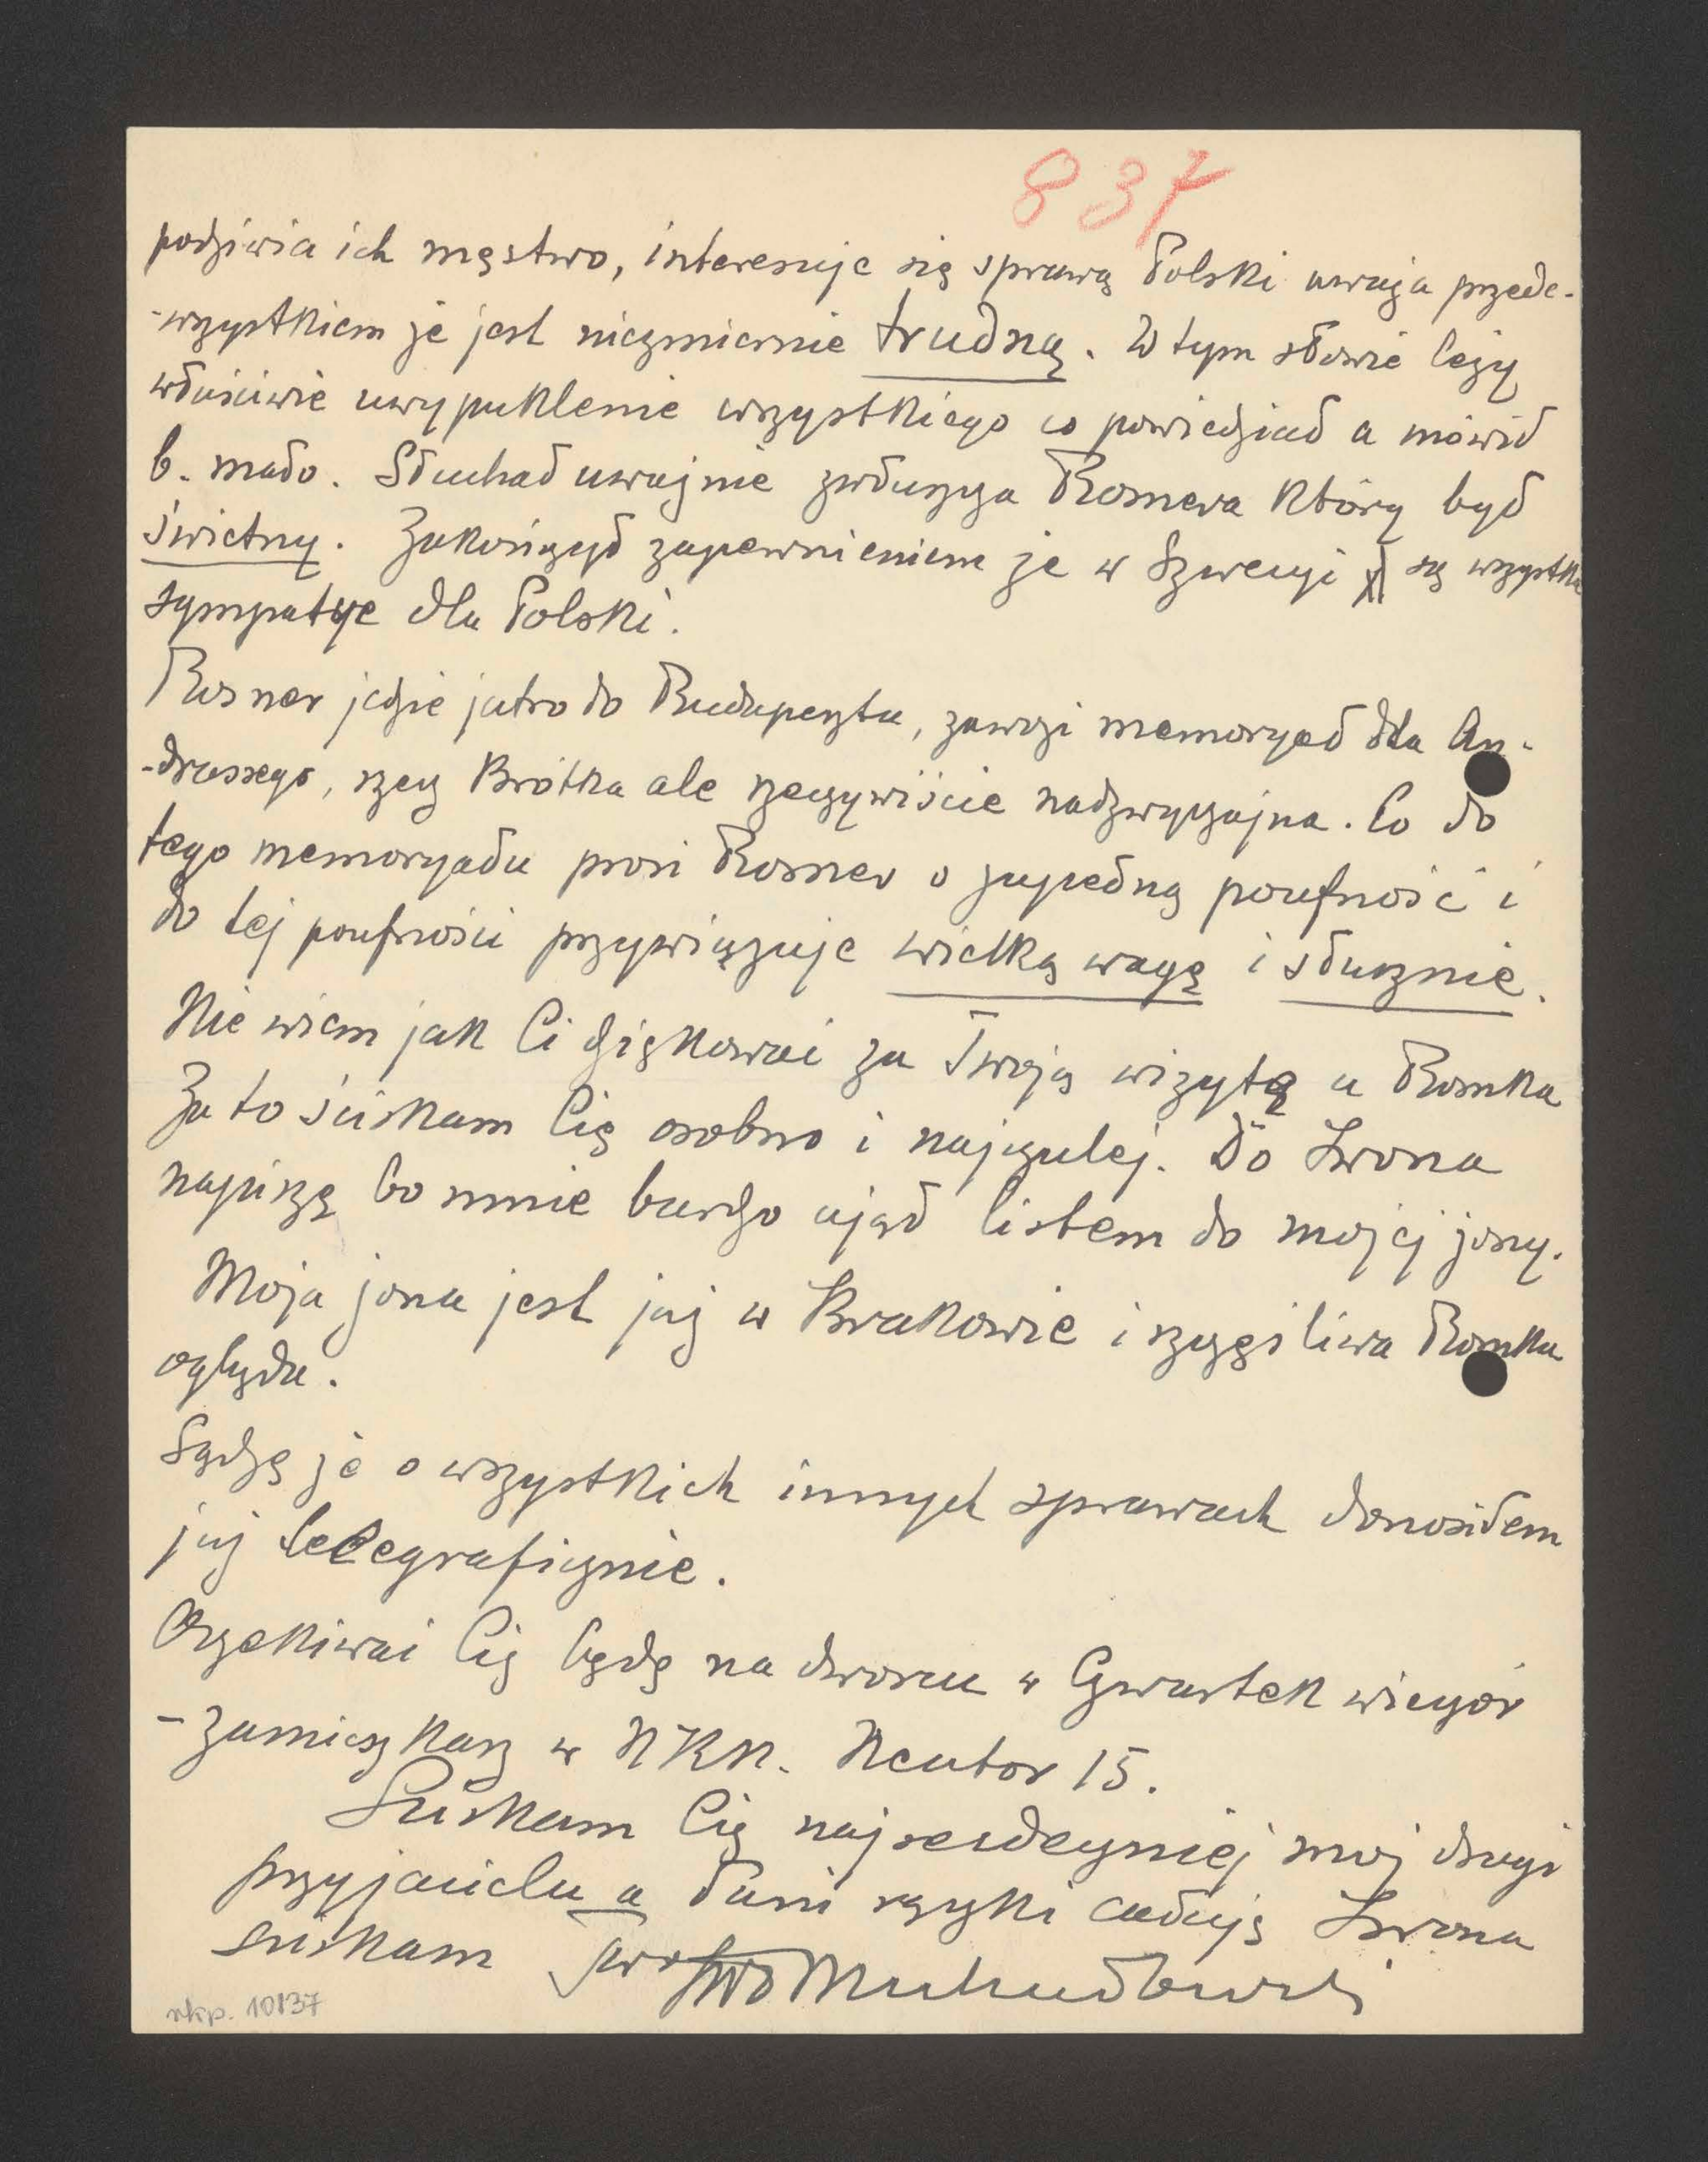 837
podziwia ich męstwo, interesuje się sprawą Polski uważa przede-
-wszystkiem że jest niezmiernie trudną. W tym słowie leży
właściwie uwypuklenie wszystkiego co powiedział a mówił
b. mało. Słuchał uważnie zwłaszcza Rosnera który był
świetny. Zakończył zapewnieniem że w Szwecyi są wszystkie
sympatye dla Polski.
Rosner jedzie jutro do Budapesztu, zawozi memoryał dla An-
-drassego, rzecz krótka ale rzeczywiście nadzwyczajna. Co do
tego memoryału prosi Rosner o zupełną poufność i
do tej poufności przywiązuje wielką wagę i słusznie.
Nie wiem jak Ci dziękować za Twoją wizytę u Romka
Za to ściskam Cię osobno i najczulej. Do Lwona
napiszę bo mnie bardzo ujął listem do mojej żony.
Moja żona jest już w Krakowie i szczęśliwa Romka
ogląda.
Sądzę że o wszystkich innych sprawach donosiłem
już telegraficznie.
Oczekiwać Cię będę na dworcu w Czwartek wieczór
- zamieszkasz w NKN. Neutor 15.
Ściskam Cię najserdeczniej mój drogi
przyjacielu a Pani rączki całuję Lwona
ściskam
rkp. 10137